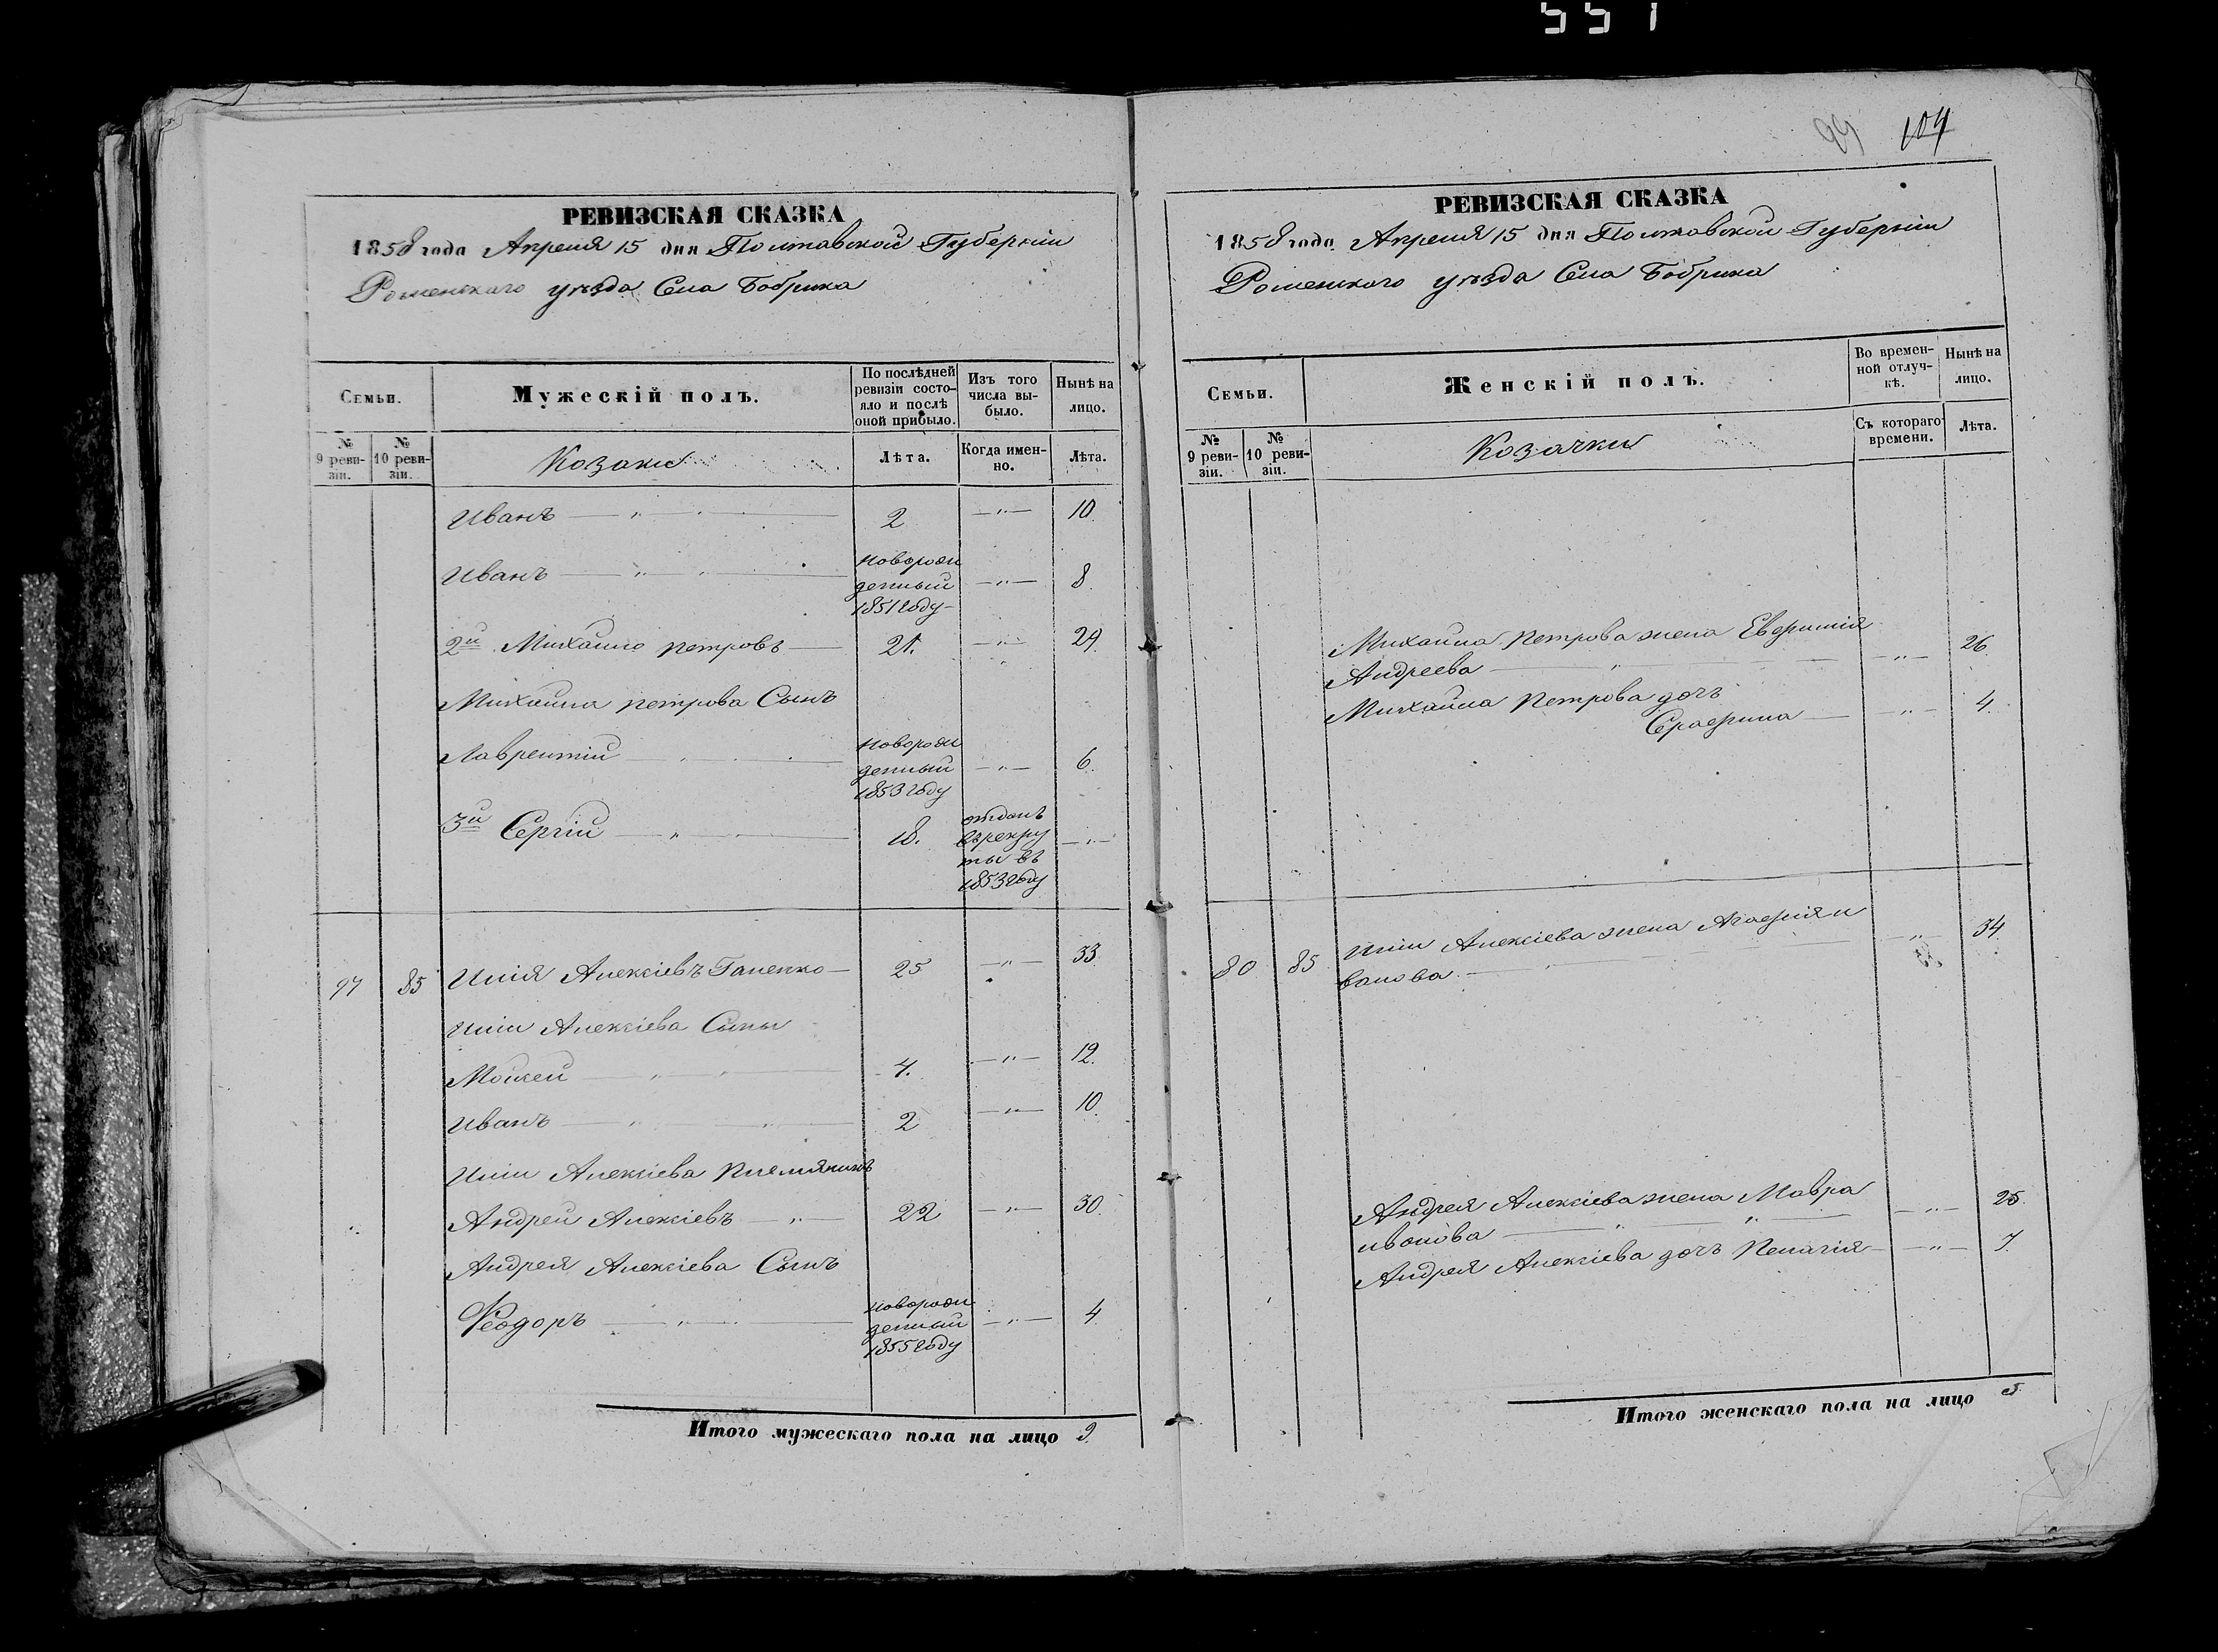 551
99 104
РЕВИЗСКАЯ СКАЗКА
1858 года Апреля 15 дня Полтавской Губерніи
Роменского уѣзда Села Бобрика
Семьи.
Мужескій полъ.
По послѣдней ревизіи состояло и послѣ оной прибыло.
Изъ того числа выбыло.
Нынѣ на лицо.
№ 9 ревизіи.
№ 10 ревизіи.
Козаки
Лѣта.
Когда именно.
Лѣта.
Иванъ — „ — „ — 2 — „ — 10.
Иванъ — „ — „ — новорожденный 1851 году — „ — 8
2й Михайло петровъ — 21. — „ — 29.
Михайла петрова Сынъ
Лаврентій — „ — новорожденный 1853 году — „ — 6.
3й Сергій — „ — 18. отданъ въ рекруты въ 1853 году — „ —
97 85 Илія Алексіевъ Гапенко — 25 — „ — 33.
Иліи Алексіева Сыны
Мойсей — „ — „ — 4. — „ — 12.
Иванъ — „ — „ — 2 — „ — 10.
Иліи Алексіева племяникъ
Андрей Алексіевъ — „ — 22 — „ — 30.
Андрея Алексіева Сынъ
Феодоръ — „ — новорожденный 1855 году — „ — 4
Итого мужескаго пола на лицо 9.
РЕВИЗСКАЯ СКАЗКА
1858 года Апреля 15 дня Полтавской Губерніи
Роменского уѣзда Села Бобрика
Семьи.
Женскій полъ.
Во временной отлучкѣ.
Нынѣ на лицо.
№ 9 ревизіи.
№ 10 ревизіи.
Козачки
Съ котораго времени.
Лѣта.
Михайла Петрова жена Евфимія
Андреева — „ — „ — 26.
Михайла Петрова дочь
Серафима — — „ — 4.
80 85 Иліи Алексіева жена Агафія и
ванова — „ — „ — 34.
Андрея Алексіева жена Мавра
ивонова — „ — „ — „ — 25.
Андрея Алексіева дочь Пелагія — „ — 7.
Итого женскаго пола на лицо 5